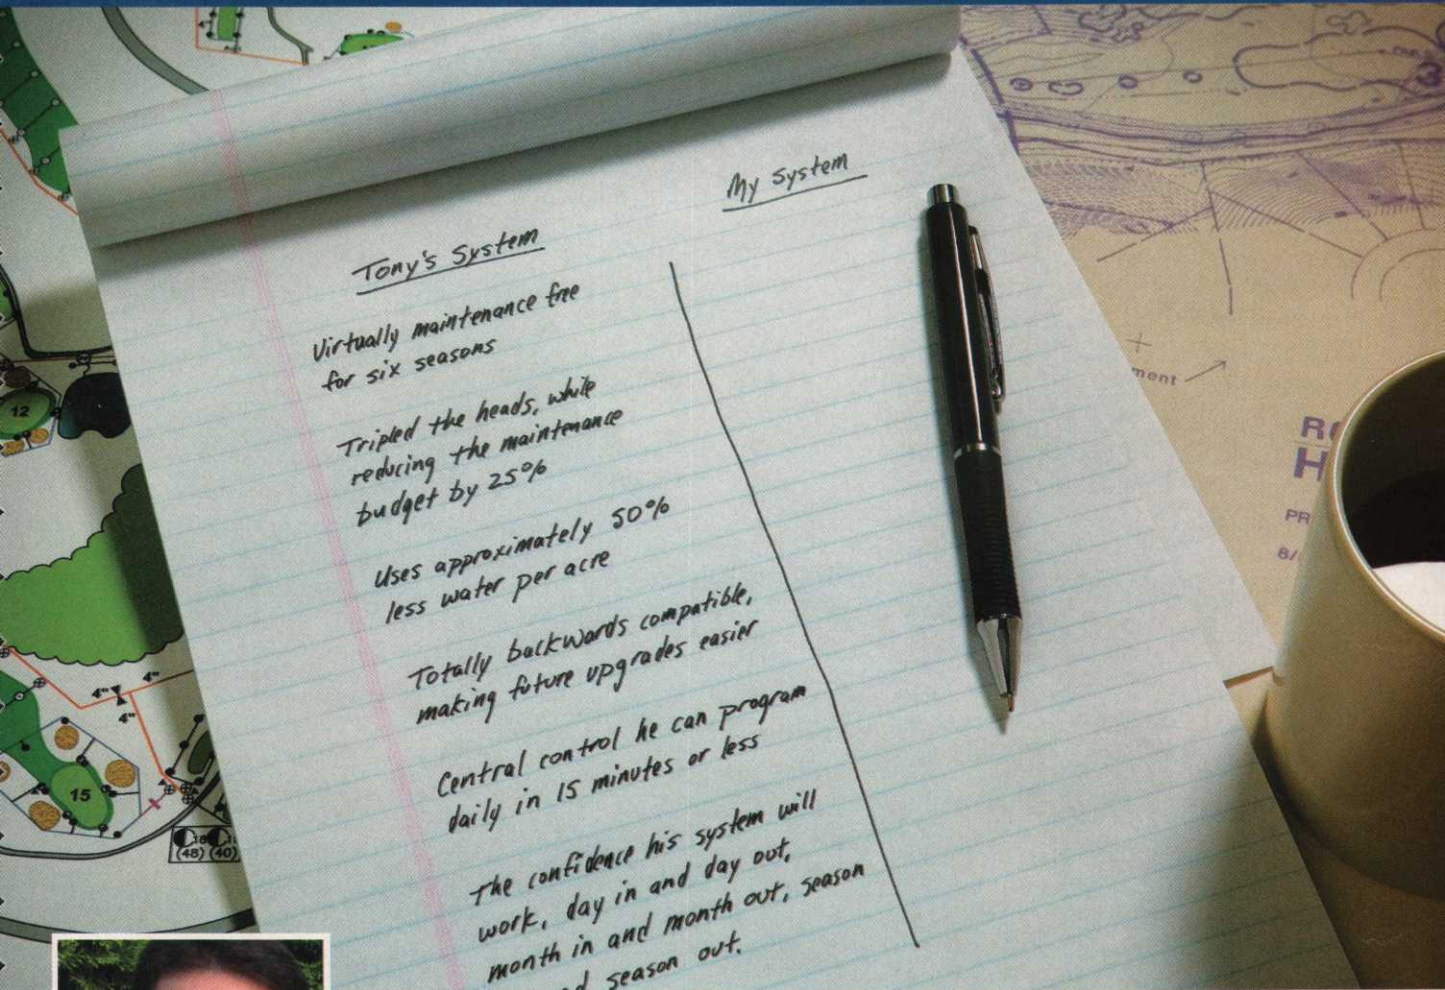 My System
Tony's System
Virtually maintenance free
for six seasons
Tripled the heads, while
reducing the maintenance
budget by 25%
Uses approximately 50%
less water per acre
Totally backwards compatible,
making future upgrades easier
Central control he can program
daily in 15 minutes or less
The confidence his system will
work, day in and day out,
month in and month out, season
season out.
12
4" 4"
4"
15
(48) (40)
3
ment
H
PR
8/